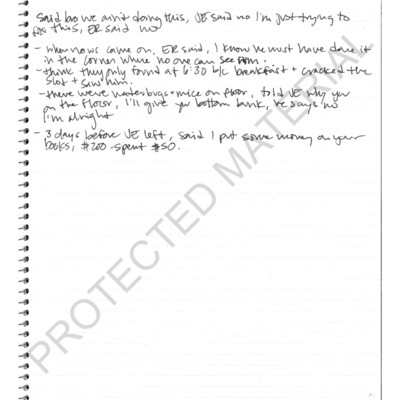 said bro we ain't doing this, JE said no I'm just trying to
fix this, ER said no
- when news came on, ER said, I know he must have done it
in the corner where no one can see him.
- think they only found at 6:30 b/c breakfast + cracked the
slot + saw him.
- there were waterbugs + mice on floor, told JE why you
on the floor, I'll give you bottom bunk, he says no
I'm alright
- 3 days before JE left, said I put some money on your
books, $200 - spent $50.
PROTECTED MATERIAL